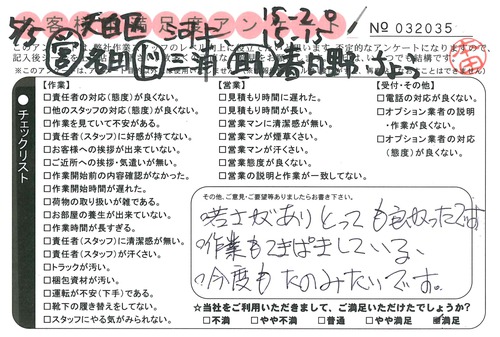 お客様満足度アンケート
№ 032035
5/5 天白区 50件 15-2.0
15-15
このアンケートは、弊社作業スタッフのレベル向上に役立て
不定的なアンケートになりますので、
【作業】
□責任者の対応(態度)が良くない。
□他のスタッフの対応(態度)が良くない。
□作業を見ていて不安がある。
□責任者(スタッフ)に好感が持てない。
□お客様への挨拶が出来ていない。
□ご近所への挨拶・気遣いが無い。
□作業開始前の内容確認がなかった。
□作業開始時間が遅れた。
□荷物の取り扱いが雑である。
□お部屋の養生が出来ていない。
□作業時間が長すぎる。
□責任者(スタッフ)に清潔感が無い。
□責任者(スタッフ)が汗くさい。
□トラックが汚い。
□梱包資材が汚い。
□運転が不安(下手)である。
□靴下の履き替えをしてない。
□スタッフにやる気がみられない。
【営業】
□見積もり時間に遅れた。
□見積もり時間が長い。
□営業マンに清潔感が無い。
□営業マンが煙草くさい。
□営業マンが汗くさい。
□営業態度が良くない。
□営業の説明と作業が一致してない。
【受付・その他】
□電話の対応が良くない。
□オプション業者の説明
・作業が良くない。
□オプション業者の対応
(態度)が良くない。
●チェックリスト
その他、ご意見・ご要望等ありましたらお書き下さい。
・若さがありとっても良かったです
・作業もきぱきしている、
・今度もたのみたいです。
☆当社をご利用いただきまして、ご満足いただけたでしょうか?
□不満 □やや不満 □普通 □やや満足 ☑満足